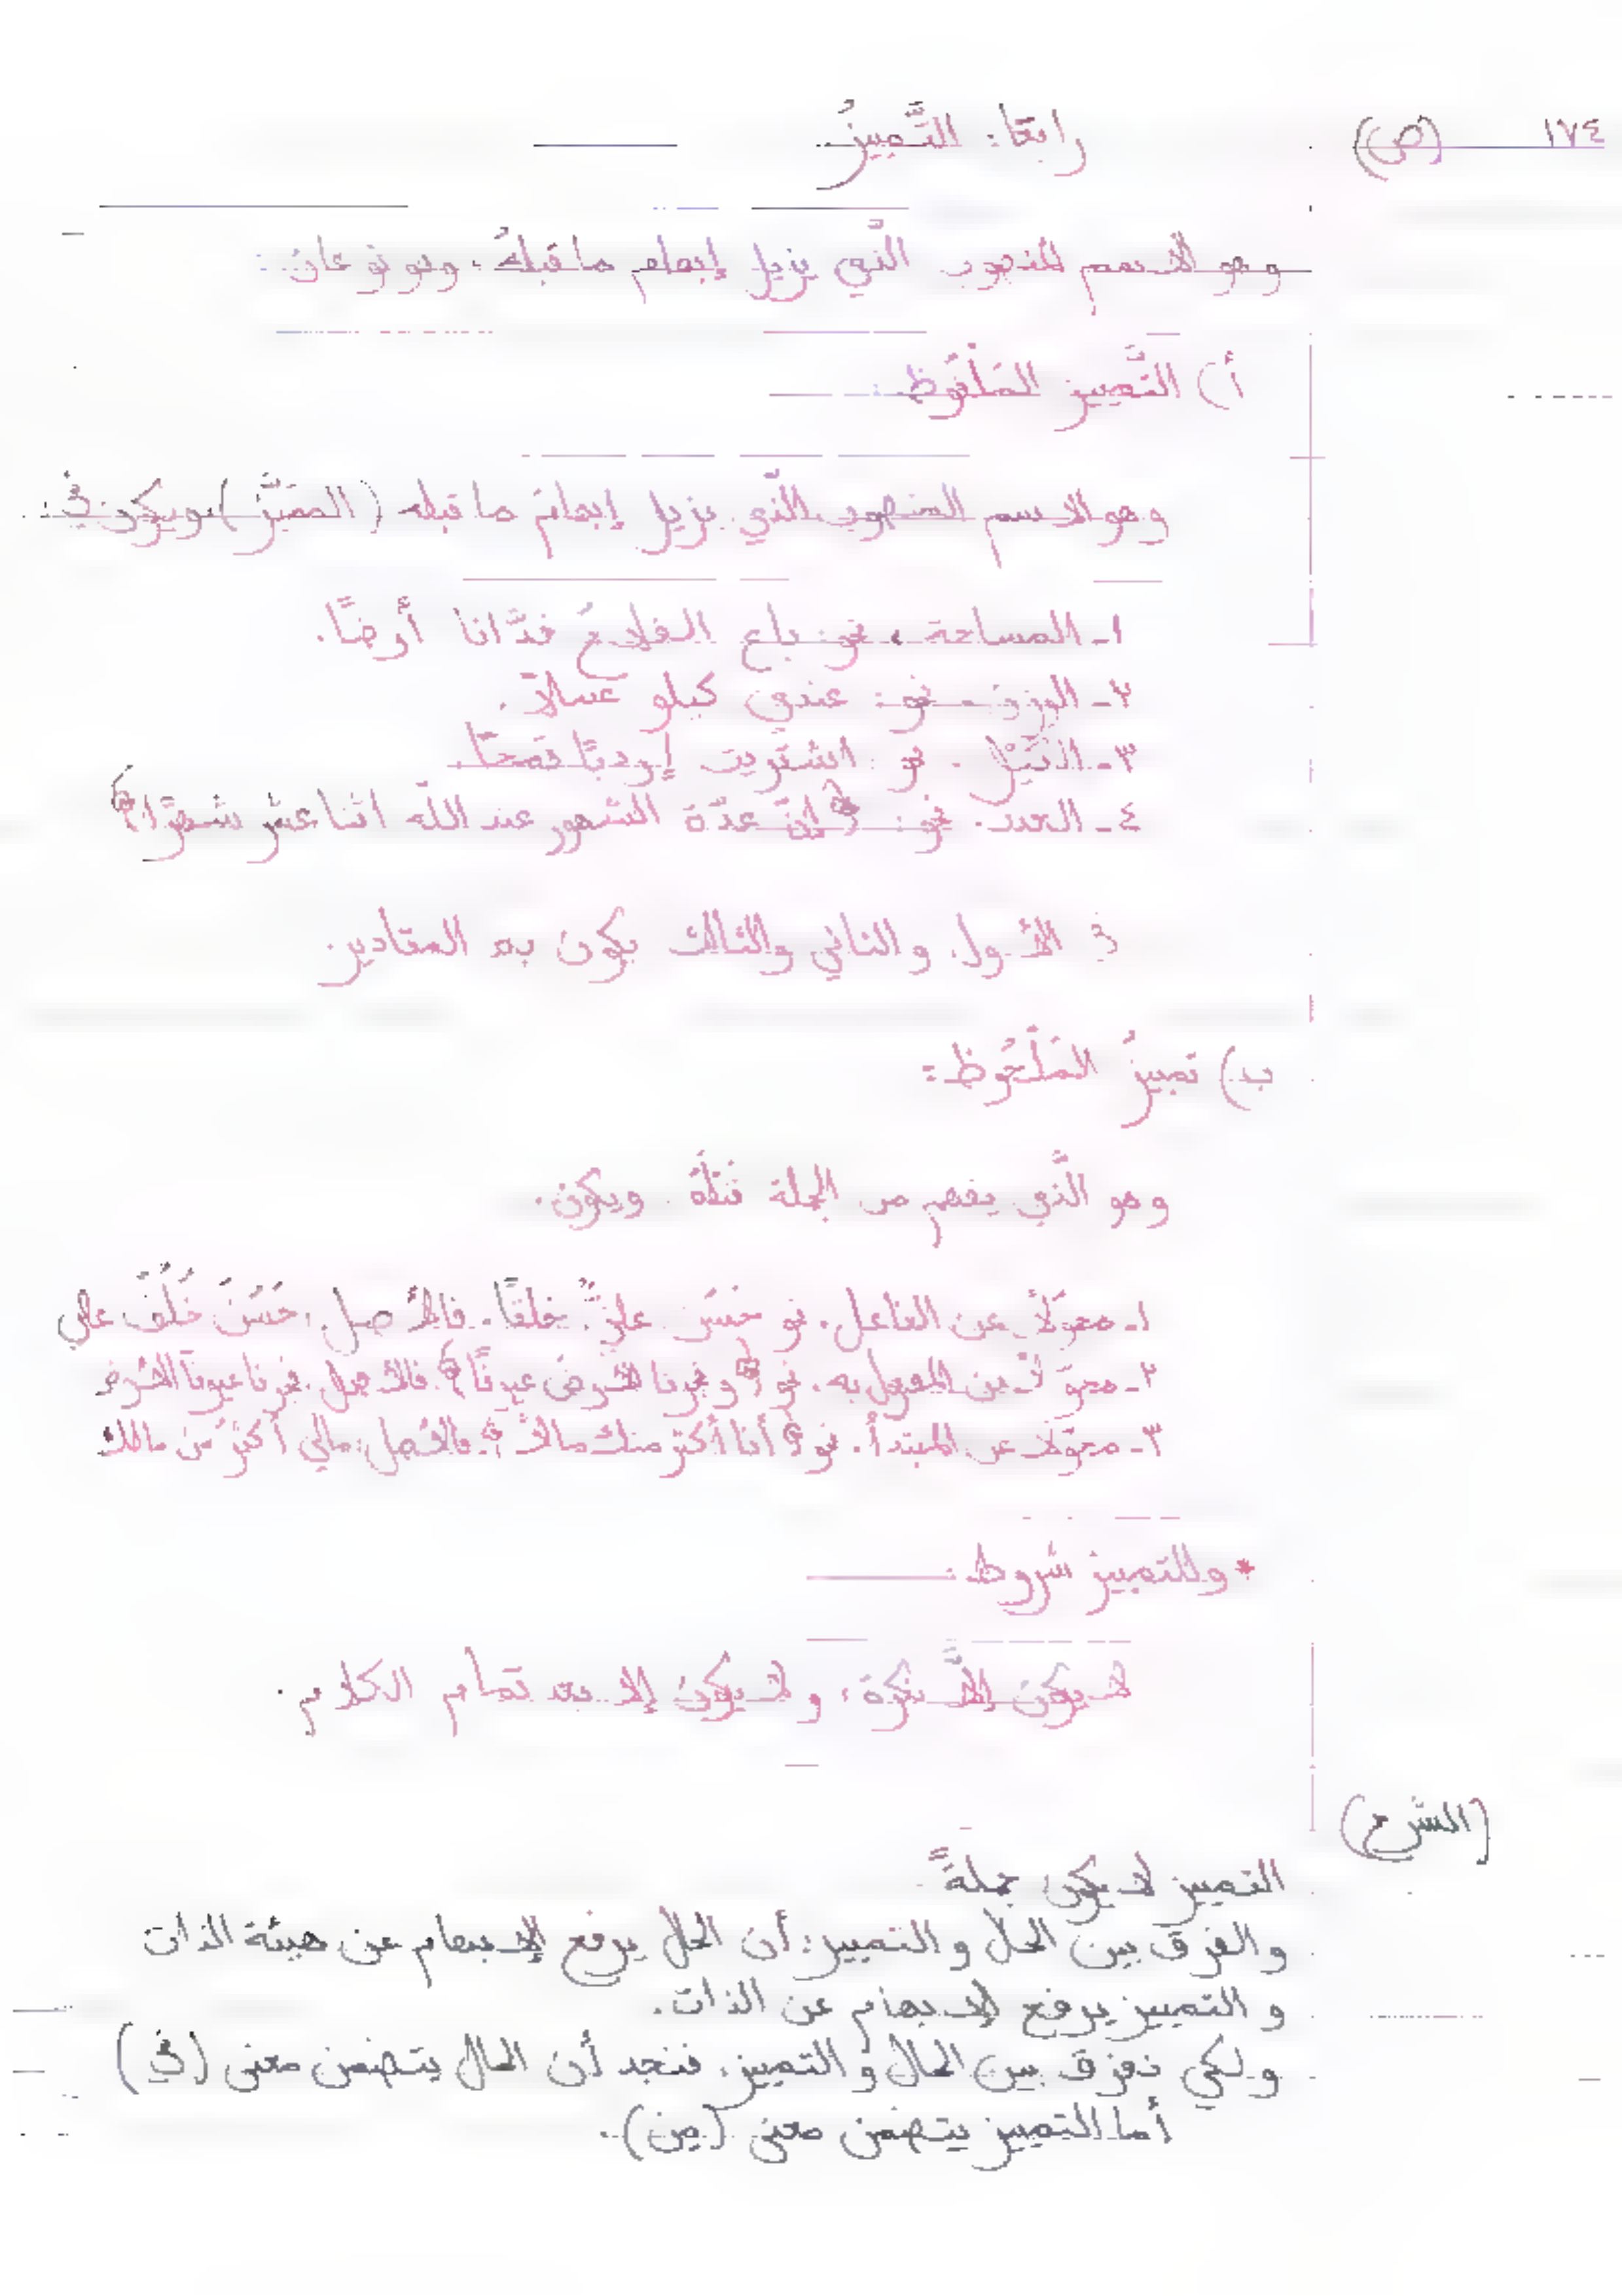 ١٧٤ (ص)
رابعًا: التَّمييزُ
وهو الاسم المنصوب الَّذي يزيل إبهام ما قبلهُ، وهو نوعان:
أ) التَّمييز المَلْفُوظ:
وهو الاسم المنصوب الَّذي يزيل إبهامَ ما قبله (المميَّز) ويكون في:
١- المساحة، نحو: باع الفلاحُ فدَّانا أرضًا.
٢- الوزن، نحو: عندي كيلو عسلاً.
٣- الكَيْل، نحو: اشتريت إردبًا قمحًا.
٤- العدد، نحو: ﴿إنَّ عدَّة الشهور عند الله اثنا عشر شهرًا﴾
الأول والثاني والثالث يكون به المقادير.
ب) تمييزُ المَلْحُوظ:
وهو الَّذي يفهم من الجملة قبله ويكون:
١- محوّلاً عن الفاعل، نحو حَسُنَ عليٌّ خلقًا، فالأصل: حَسُنَ خُلُقُ علي
٢- محوّلاً عن المفعول به، نحو ﴿وفجرنا الأرضَ عيونًا﴾ فالأصل، فجرنا عيونَ الأرض
٣- محوّلاً عن المبتدأ، نحو ﴿أنا أكثر منك مالاً﴾ فالأصل: مالي أكثرُ من مالك
* وللتمييز شروط:
لا يكون إلاَّ نكرة، ولا يكون إلا بعد تمام الكلام.
(الشرح)
التمييز لا يكون جملةً
والفرق بين الحال والتمييز: أن الحال يرفع الإبهام عن هيئة الذات
والتمييز يرفع الإبهام عن الذات.
ولكي نفرق بين الحال والتمييز، فنجد أن الحال يتضمن معنى (في)
أما التمييز يتضمن معنى (مِن).